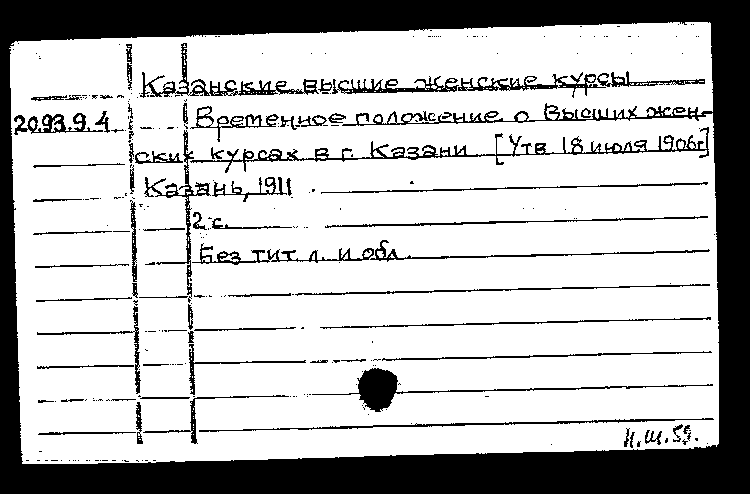 Казанские высшие женские курсы
20.93.9.4 Временное положение о Высших жен-
ских курсах в г. Казани [Утв 18 июля 1906г]
Казань, 1911
2 с.
Без тит. л. и обл.
11.III.59.